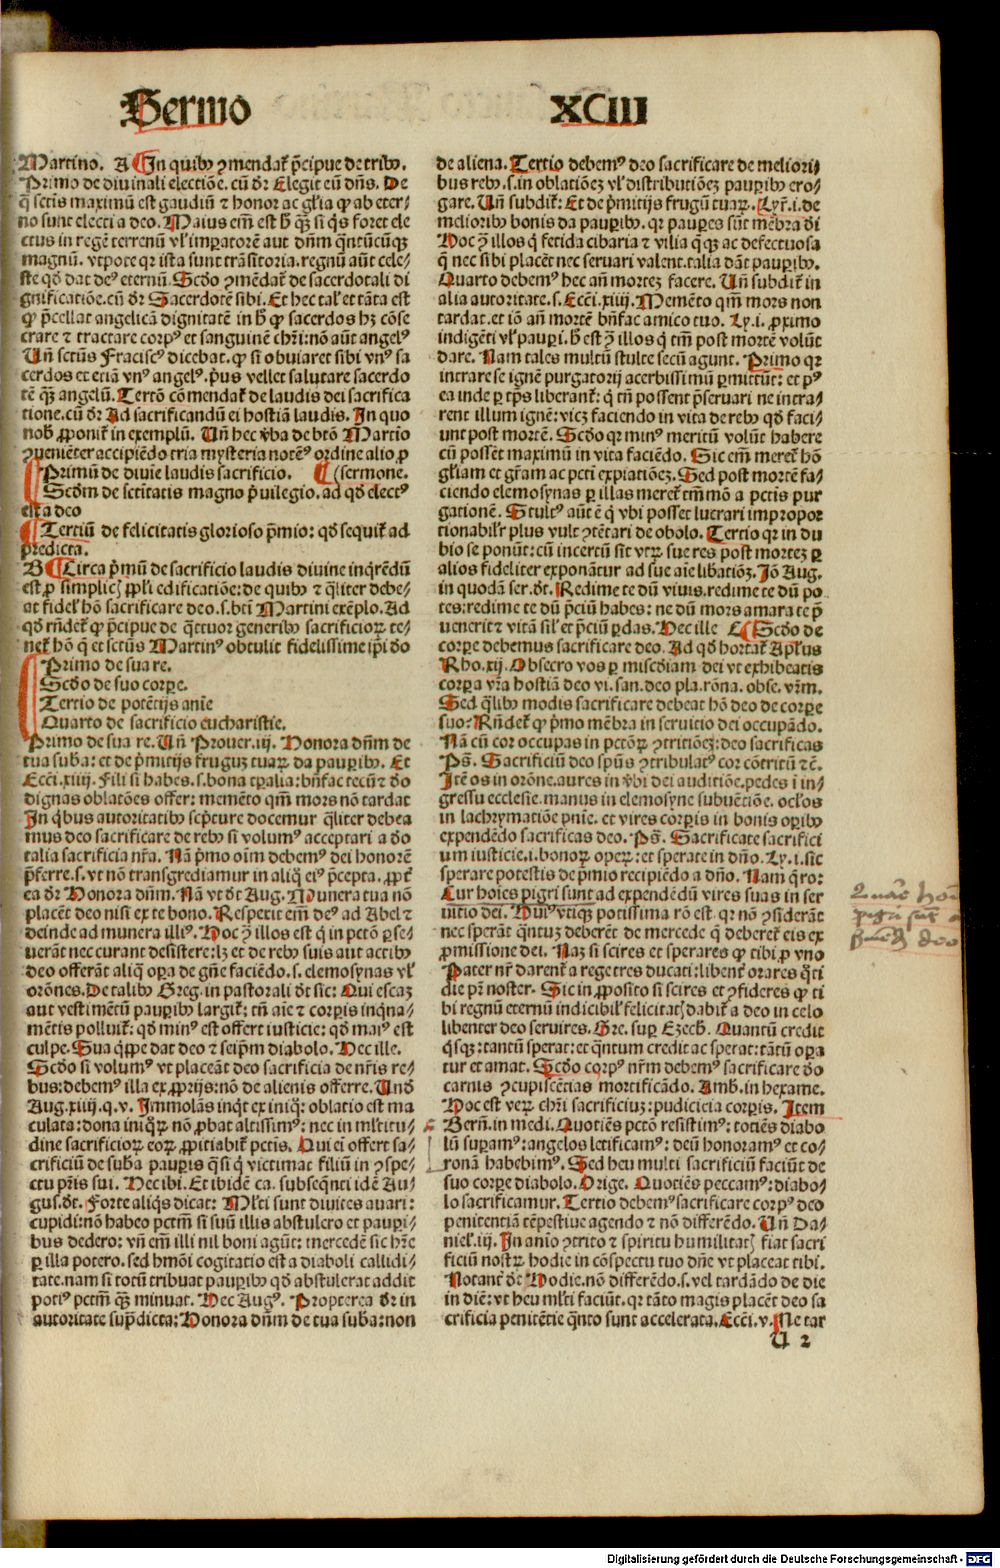 Sermo XCIII
Martino. A ¶ In quibꝰ ꝯmendat᷑ p̄cipue de tribꝰ.
Primo de diuinali electiōe. cū dr̄ Elegit cū dn̄s. De
q̄ sctis maximū est gaudiū ⁊ honor ac gl̄ia ꝙ ab eter/
no sunt electi a deo. Maius em̄ est h̄ q̄ꝫ si q̄s foret ele
ctus in regē terrenū vl̓ imꝑatorē aut dn̄m q̄ntūcūqꝫ
magnū. vtpote qꝛ ista sunt trāsitoria. regnū aūt cele/
ste qd̄ dat deꝰ eternū. Scd̄o ꝯmēdat᷑ de sacerdotali di
gnificatiōe. cū dr̄ Sacerdotē sibi. Et hec tal̓ et tāta est
ꝙ p̄cellat angelicā dignitatē in h̄ ꝙ sacerdos hꝫ cōse
crare ⁊ tractare corpꝰ et sanguinē chr̄i: nō aūt angelꝰ
Un̄ sctūs Fraciscꝰ dicebat. ꝙ si obuiaret sibi vnꝰ sa
cerdos et etiā vnꝰ angelꝰ. p̄us vellet salutare sacerdo
tē q̄ꝫ angelū. Tertō cōmendat᷑ de laudis dei sacrifica
tione. cū dr̄ Ad sacrificandū ei hostiā laudis. In quo
nob̄ ꝓponit᷑ in exemplū. Un̄ hec v̄ba de btō Martio
ꝯueniēter accipiēdo tria mysteria notēꝰ ordine alio. ꝓ
¶ Primū de diuīe laudis sacrificio. ¶ (sermone.
Scd̄m de sctitatis magno p̄uilegio. ad qd̄ electꝰ
est a deo
¶ Tertiū de felicitatis glorioso p̄mio: qd̄ sequit᷑ ad
predicta.
B ¶ Circa p̄mū de sacrificio laudis diuine inq̄rēdū
est ꝓ simplicꝭ ppl̓i edificatiōe: de quibꝰ ⁊ q̄liter debe/
at fidel̓ hō sacrificare deo. s. bt̄i Martini exēplo. Ad
qd̄ rn̄det᷑ ꝙ p̄cipue de q̄ttuor generibꝰ sacrificioꝝ te/
net᷑ hō q̄ et sctūs Martinꝰ obtulit fidelissime ip̄i dō
Primo de sua re.
Scd̄o de suo corꝑe.
Tertio de potētijs anīe
Quarto de sacrificio eucharistie.
Primo de sua re. Un̄ Prouer. iij. Honora dn̄m de
tua suba: et de p̄mitijs frugꝫ tuaꝝ da pauꝑibꝰ. Et
Ecci. xiiij. Fili si habes. s. bona tꝑalia: bn̄fac tecū ⁊ dō
dignas oblatōes offer: memēto qm̄ mors nō tardat
In q̄bus autoritatibꝰ scp̄ture docemur q̄liter debea
mus deo sacrificare de rebꝰ si volumꝰ acceptari a dō
talia sacrificia nr̄a. Nā p̄mo oīm debemꝰ dei honorē
p̄ferre. s. vt nō transgrediamur in aliq̄ eiꝰ p̄cepta. ꝓpt̓
ea dr̄ Honora dn̄m. Nā vt dr̄ Aug. Munera tua nō
placēt deo nisi ex te bono. Respexit em̄ deꝰ ad Abel ⁊
deinde ad munera illiꝰ. Hoc ꝯ illos est q̄ in pctō ꝑse/
uerāt nec curant desistere: lꝫ et de rebꝰ suis aut actibꝰ
deo offerāt aliq̄ oꝑa de gn̄e faciēdo. s. elemosynas vl̓
orōnes. De talibꝰ Greg. in pastorali dt̄ sic: Qui escaꝫ
aut vestimētū pauꝑibꝰ largit᷑: tn̄ aīe ⁊ corꝑis inq̄na/
mētis polluit᷑: qd̄ minꝰ est offert iusticie: qd̄ maiꝰ est
culpe. Sua q̄ppe dat deo ⁊ seip̄m diabolo. Hec ille.
Scd̄o si volumꝰ vt placeāt deo sacrificia de nr̄is re/
bus: debemꝰ illa ex ꝓprijs: nō de alienis offerre. Und̄
Aug. xiiij. q. v. Immolās inq̄t ex iniq̄: oblatio est ma
culata: dona iniq̄ꝝ nō ꝓbat altissimꝰ: nec in ml̓titu/
dine sacrificioꝝ eoꝝ ꝓpitiabit᷑ pctīs. Qui ei offert sa/
crificiū de suba pauꝑis q̄si q̄ victimat filiū in ꝯspe/
ctu pr̄is sui. Hec ibi. Et ibidē ca. subseq̄nti idē Au/
guſ. dt̄. Forte aliq̄s dicat: Ml̓ti sunt diuites auari:
cupidi: nō habeo pctm̄ si suū illis abstulero et pauꝑi/
bus dedero: vn̄ em̄ illi nil boni agūt: mercedē sic hr̄e
ꝑ illa potero. sed hmōi cogitatio est a diaboli callidi/
tate. nam si totū tribuat pauꝑibꝰ qd̄ abstulerat addit
potiꝰ pctm̄ q̄ꝫ minuat. Hec Augꝰ. Propterea dr̄ in
autoritate sup̄dicta: Honora dn̄m de tua suba: non
de aliena. Tertio debemꝰ deo sacrificare de meliori/
bus rebꝰ. s. in oblatiōeꝫ vl̓ distributiōeꝫ pauꝑibꝰ ero/
gare. Un̄ subdit᷑: Et de p̄mitijs frugū tuaꝝ. Lyr̄. i. de
melioribꝰ bonis da pauꝑibꝰ. qꝛ pauꝑes sūt mēbra dī
Hoc ꝯ illos q̄ fetida cibaria ⁊ vilia q̄qꝫ ac defectuosa
q̄ nec sibi placēt nec seruari valent. talia dāt pauꝑibꝰ.
Quarto debemꝰ hec an̄ mortez facere. Un̄ subdit᷑ in
alia autoritate. s. Ecci. xiiij. Memēto qm̄ mors non
tardat. et iō an̄ mortē bn̄fac amico tuo. Ly. i. ꝓximo
indigēti vl̓ pauꝑi. h̄ est ꝯ illos q̄ tm̄ post mortē volūt
dare. Nam tales multū stulte secū agunt. Primo qꝛ
intrare se ignē purgatorij acerbissimū ꝑmittūt: et pꝰ
ea inde ꝑ tp̄s liberant᷑: q̄ tn̄ possent p̄seruari ne intra/
rent illum ignē: vicꝫ faciendo in vita de rebꝰ qd̄ faci/
unt post mortē. Scd̄o qꝛ minꝰ meritū volūt habere
cū possēt maximū in vita faciēdo. Sic em̄ meret᷑ hō
gl̄iam et gr̄am ac pcti expiatiōeꝫ. Sed post mortē fa/
ciendo elemosynas ꝑ illas meret᷑ tm̄mō a pctīs pur
gationē. Stultꝰ aūt ē q̄ vbi posset lucrari impropor
tionabil̓r plus vult ꝯtētari de obolo. Tertio qꝛ in du
bio se ponūt: cū incertū sit vtꝝ sue res post mortez ꝑ
alios fideliter exponātur ad sue aīe libatiōꝫ. Iō Aug.
in quodā ser. dt̄. Redime te dū viuis. redime te dū po
tes: redime te dū p̄ciū habes: ne dū mors amara te p̄
uenerit ⁊ vitā sil̓ et p̄ciū ꝑdas. Hec ille C ¶ Scd̄o de
corꝑe debemus sacrificare deo. Ad qd̄ hortat᷑ Apl̓us
Rho. xij. Obsecro vos ꝑ mīscd̓iam dei vt exhibeatis
corꝑa vr̄a hostiā deo vi. san. deo pla. rōna. obse. vr̄m.
Sed q̄libꝰ modis sacrificare debeat hō deo de corꝑe
suo? Rn̄det᷑ ꝙ p̄mo mēbra in seruicio dei occupādo.
Nā cū cor occupas in pctōꝝ ꝯtritiōeꝫ: deo sacrificas
Pſ̄. Sacrificiū deo spūs ꝯtribulatꝰ cor cōtritū ⁊ē.
Itē os in orōne. aures in v̄bi dei auditiōe. pedes ī in/
gressu ecclesie. manus in elemosyne subuētiōe. ocl̓os
in lachrymatiōe pnīe. et vires corꝑis in bonis oꝑibꝰ
expendēdo sacrificas deo. Pſ̄. Sacrificate sacrifici
um iusticie. i. bonoꝝ opeꝝ: et sperate in dn̄o. Ly. i. sic
sperare potestis de p̄mio recipiēdo a dn̄o. Nam q̄ro:
Cur hoīes pigri sunt ad expendēdū vires suas in ser
uitio dei. Huiꝰ vtiqꝫ potissima rō est. qꝛ nō ꝯsiderāt
nec sperāt q̄ntuꝫ deberēt de mercede q̄ deberet᷑ eis ex
ꝓmissione dei. Naꝫ si scires et sperares ꝙ tibi ꝓ vno
Pater nr̄ darent᷑ a rege tres ducati: libent᷑ orares q̄ti
die pr̄ noster. Sic in ꝓposito si scires et ꝯfideres ꝙ ti
bi regnū eternū indicibil̓ felicitatꝭ dabit᷑ a deo in celo
libenter deo seruires. Gre. suꝑ Ezech. Quantū credit
q̄sqꝫ: tantū sperat: et q̄ntum credit ac sperat: tātū oꝑa
tur et amat. Scd̄o corpꝰ nr̄m debemꝰ sacrificare dō
carnis ꝯcupiscētias mortificādo. Amb. in hexame.
Hoc est veꝝ chr̄i sacrificiuꝫ: pudicicia corꝑis. Item
Bern̄. in medi. Quotiēs pctō resistimꝰ: totiēs diabo
lū suꝑamꝰ: angelos letificamꝰ: deū honoramꝰ et co/
ronā habebimꝰ. Sed heu multi sacrificiū faciūt de
suo corꝑe diabolo. Orige. Quotiēs peccamꝰ: diabo/
lo sacrificamur. Tertio debemꝰ sacrificare corpꝰ deo
penitentiā tēpestiue agendo ⁊ nō differēdo. Un̄ Da/
niel̓. iij. In anīo ꝯtrito ⁊ spiritu humilitatꝭ fiat sacri
ficiū nostꝝ hodie in cōspectu tuo dn̄e vt placeat tibi.
Notant᷑ dr̄ Hodie. nō differēdo. s. vel tardādo de die
in diē: vt heu ml̓ti faciūt. qꝛ tāto magis placēt deo sa
crificia penitētie q̄nto sunt accelerata. Ecci. v. Ne tar
U 2
pigri sūt a
deo
Digitalisierung gefördert durch die Deutsche Forschungsgemeinschaft - DFG